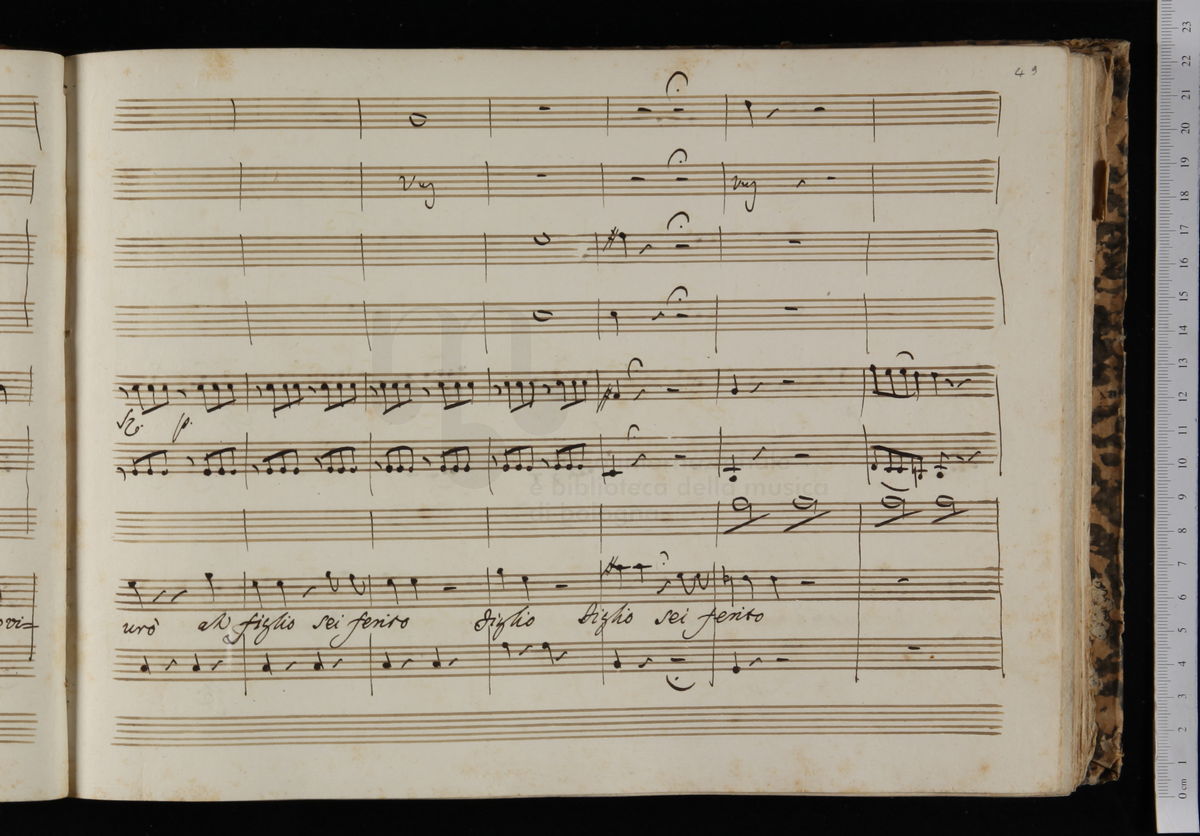 49
Vnj
Vnj
p.
ovi=
urò ah figlio sei ferito figlio figlio sei ferito
e biblioteca della musica
0 cm 1 2 3 4 5 6 7 8 9 10 11 12 13 14 15 16 17 18 19 20 21 22 23